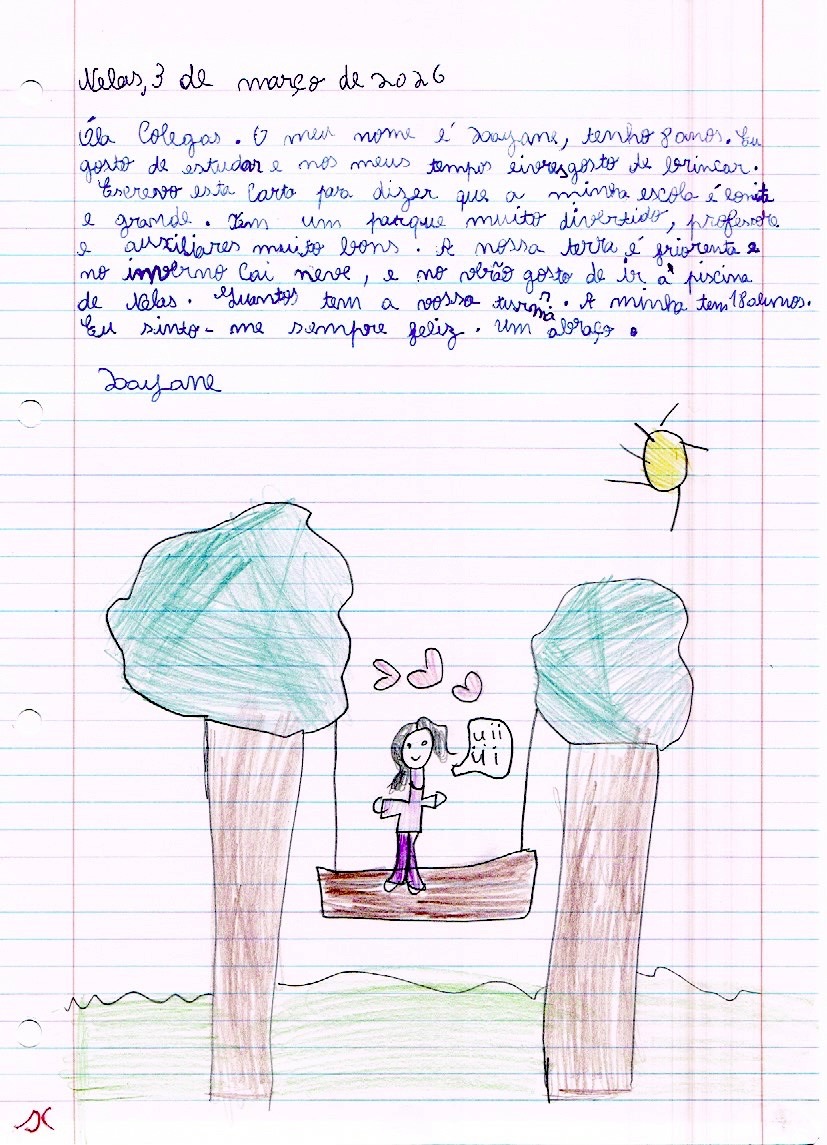 Nelas, 3 de março de 2026
Óla Colegas. O meu nome é Dayane, tenho 8 anos. Eu
gosto de estudar e nos meus tempos livres gosto de brincar.
Escrevo esta Carta para dizer que a minha escola é bonita
e grande. Tem um parque muito divertido, professora
e auxiliares muito bons. A nossa terra é friorenta e
no inverno Cai neve, e no verão gosto de ir à piscina
de Nelas. Quantos tem a vossa turma?. A minha tem 18 alunos.
Eu sinto-me sempre feliz. Um abraço.
Dayane
uii
úi